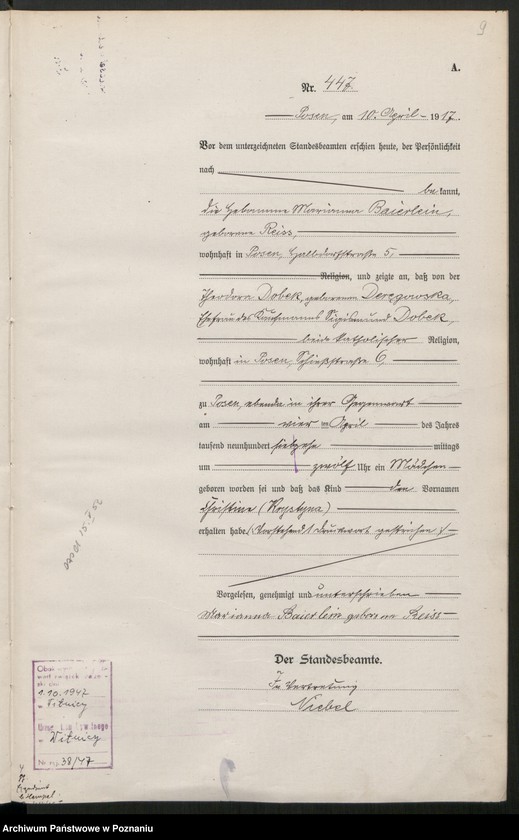 9
A.
Nr. 447
Posen, am 10. April 1917.
Vor dem unterzeichneten Standesbeamten erschien heute, der Persönlichkeit
nach
bekannt,
die Hebamme Marianna Baierlein,
geborene Reiss,
wohnhaft in Posen, Halbdorfstraße 5.
Religion, und zeigte an, daß von der
Theodora Dobek, geborenen Deregowska,
Ehefrau des Kaufmanns Sigismund Dobek,
beide katholischer Religion,
wohnhaft in Posen, Schießstraße 6,
zu Posen, ebenda in ihrer Gegenwart
am vier April des Jahres
tausend neunhundert siebzehn mittags
um zwölf Uhr ein Mädchen
geboren worden sei und daß das Kind den Vornamen
Christine (Krystyna)
erhalten habe. (Vorstehend 1 Druckwort gestrichen)
Vorgelesen, genehmigt und unterschrieben
Marianna Baierlein geborene Reiss
Der Standesbeamte.
In Vertretung
Niebel
1.10.1947
w Witnicy
w Witnicy
38/47
Archiwum Państwowe w Poznaniu